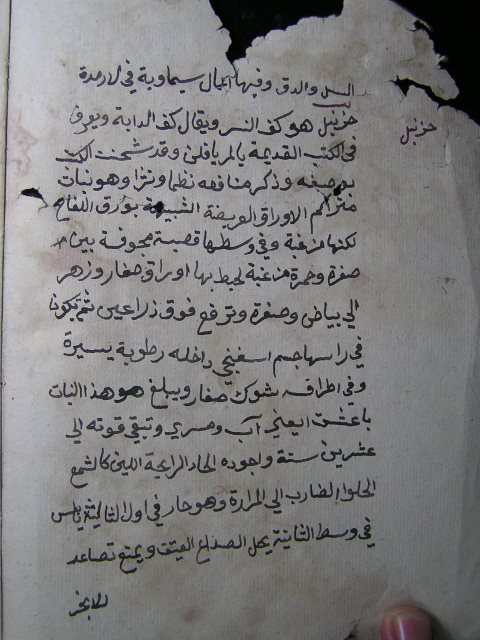 السل والدق وفيها اعمال سيماوية في لارمدة
خزنبل
خزنبل هو كف النسر ويقال كف الدابة ويعرف
في الكتب القديمة بالمريافلن وقد شحنت الكتب
بوصفه وذكر منافعه نظما ونثرا وهو نبات
الاوراق العريضة الشبيهة بورق التفاح
لكنها مزغبة وفي وسطها قصبة مجوفة بين
صفرة وحمرة مزغبة تحيط بها اوراق صغار وزهر
الي بياض وصفرة وترفع فوق ذراعين ثم تكون
في راسها جسم اسفنجي داخله رطوبة يسيرة
وفي اطرافه شوك صغار ويبلغ هو هذا النبات
باغشت ايعني آب ومسري وتبقي قوته الي
عشرين سنة واجوده الحاد الرايحة اللين كالشمع
الحلو الضارب الي المرارة وهو حار في اول الثالثة يابس
في وسط الثانية يحل الصداع العتيق ويمنع تصاعد
الابخر